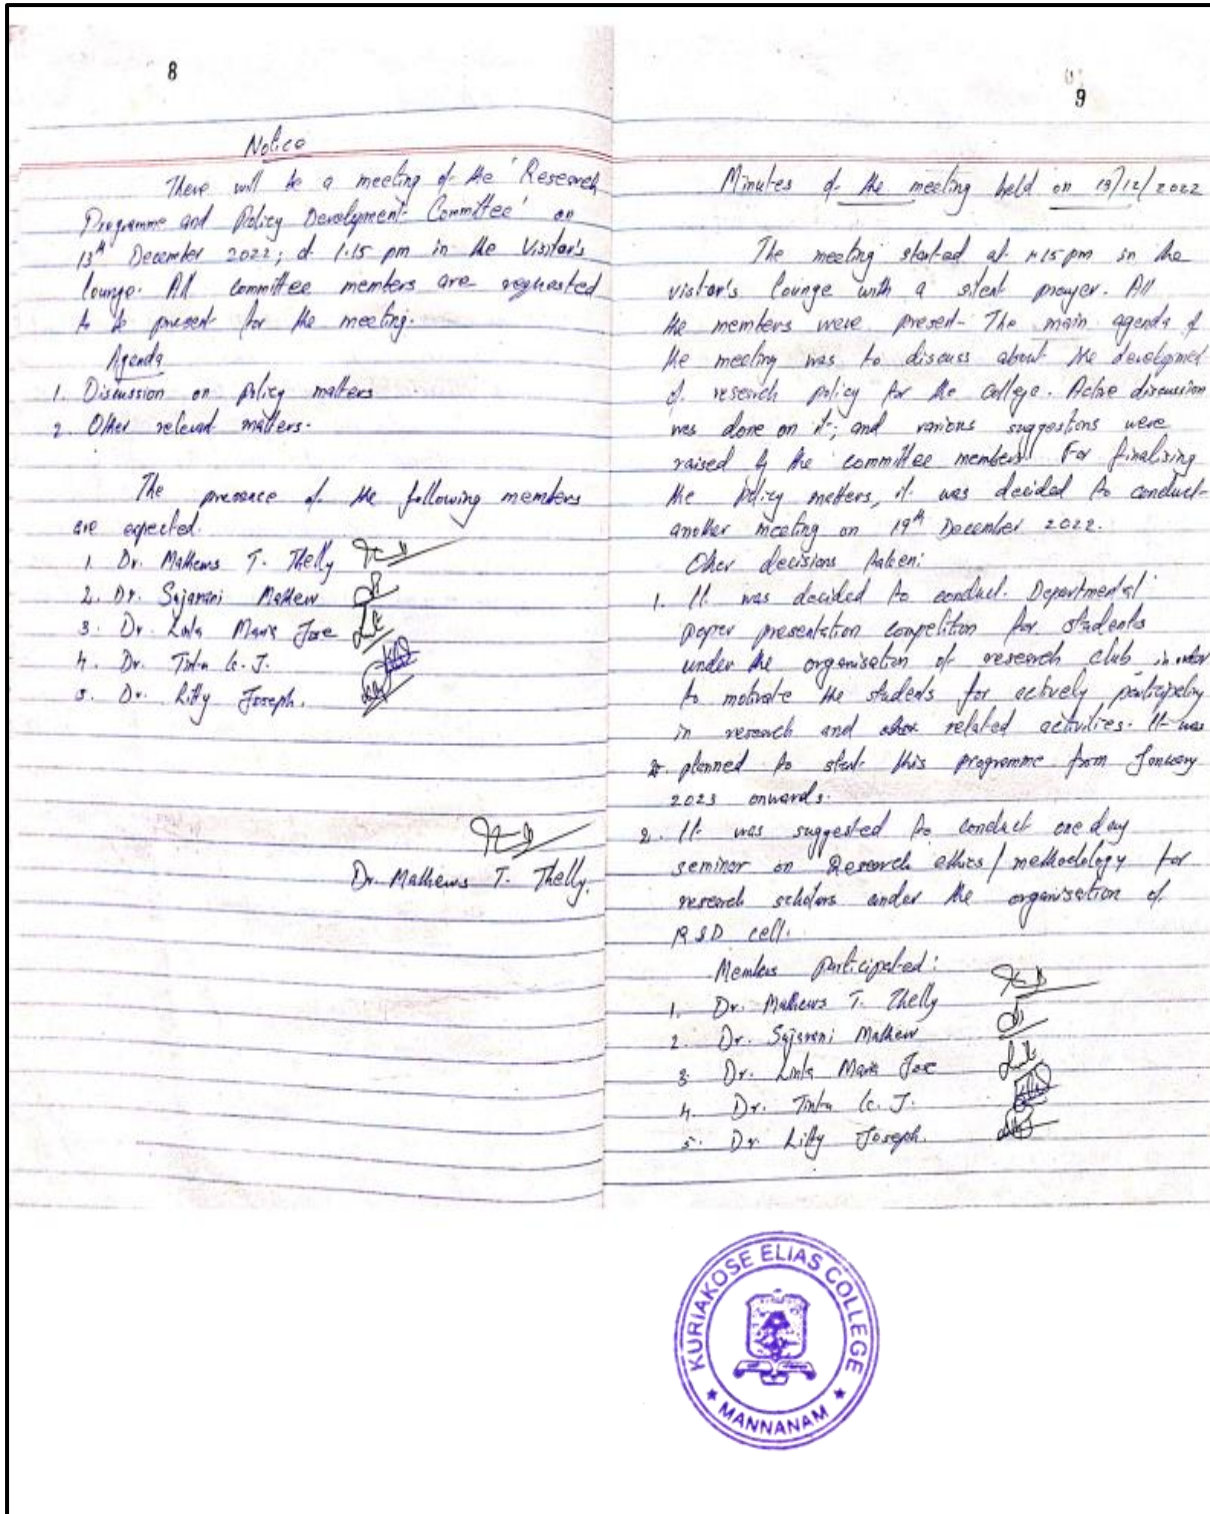 8
Notice
There will be a meeting of the 'Research
Programme and Policy Development Committee' on
13th December 2022; at 1.15 pm in the Visitor's
lounge. All committee members are requested
to be present for the meeting.
Agenda
1. Discussion on policy matters
2. Other relevant matters.
The presence of the following members
are expected.
1. Dr. Mathews T. Thelly
2. Dr. Sajarani Mathew
3. Dr. Linla Maria Jose
4. Dr. Tintu K. J.
5. Dr. Litty Joseph.
Dr. Mathews T. Thelly.
9
Minutes of the meeting held on 13/12/2022
The meeting started at 1.15 pm in the
visitor's lounge with a silent prayer. All
the members were present. The main agenda of
the meeting was to discuss about the development
of research policy for the college. Active discussion
was done on it; and various suggestions were
raised by the committee members. For finalising
the policy matters, it was decided to conduct
another meeting on 19th December 2022.
Other decisions taken:
1. It was decided to conduct Departmental
paper presentation competition for students
under the organisation of research club in order
to motivate the students for actively participating
in research and other related activities. It was
planned to start this programme from January
2023 onwards.
2. It was suggested to conduct one day
seminar on Research ethics / methodology for
research scholars under the organisation of
R&D cell.
Members participated:
1. Dr. Mathews T. Thelly
2. Dr. Sajarani Mathew
3. Dr. Linla Maria Jose
4. Dr. Tintu K. J.
5. Dr Litty Joseph.
KURIAKOSE ELIAS COLLEGE
MANNANAM